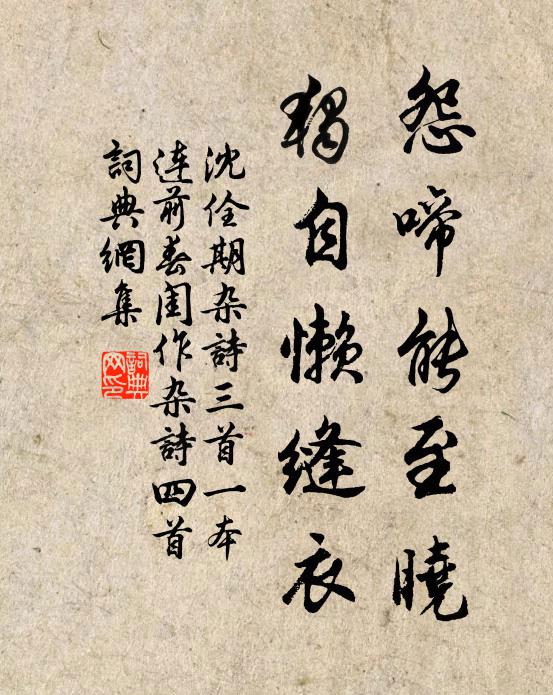 怨啼能至曉
獨自懶縫衣
沈佺期杂詩三首一本
連前春閨作杂詩四首
詞典網集
詞典網印